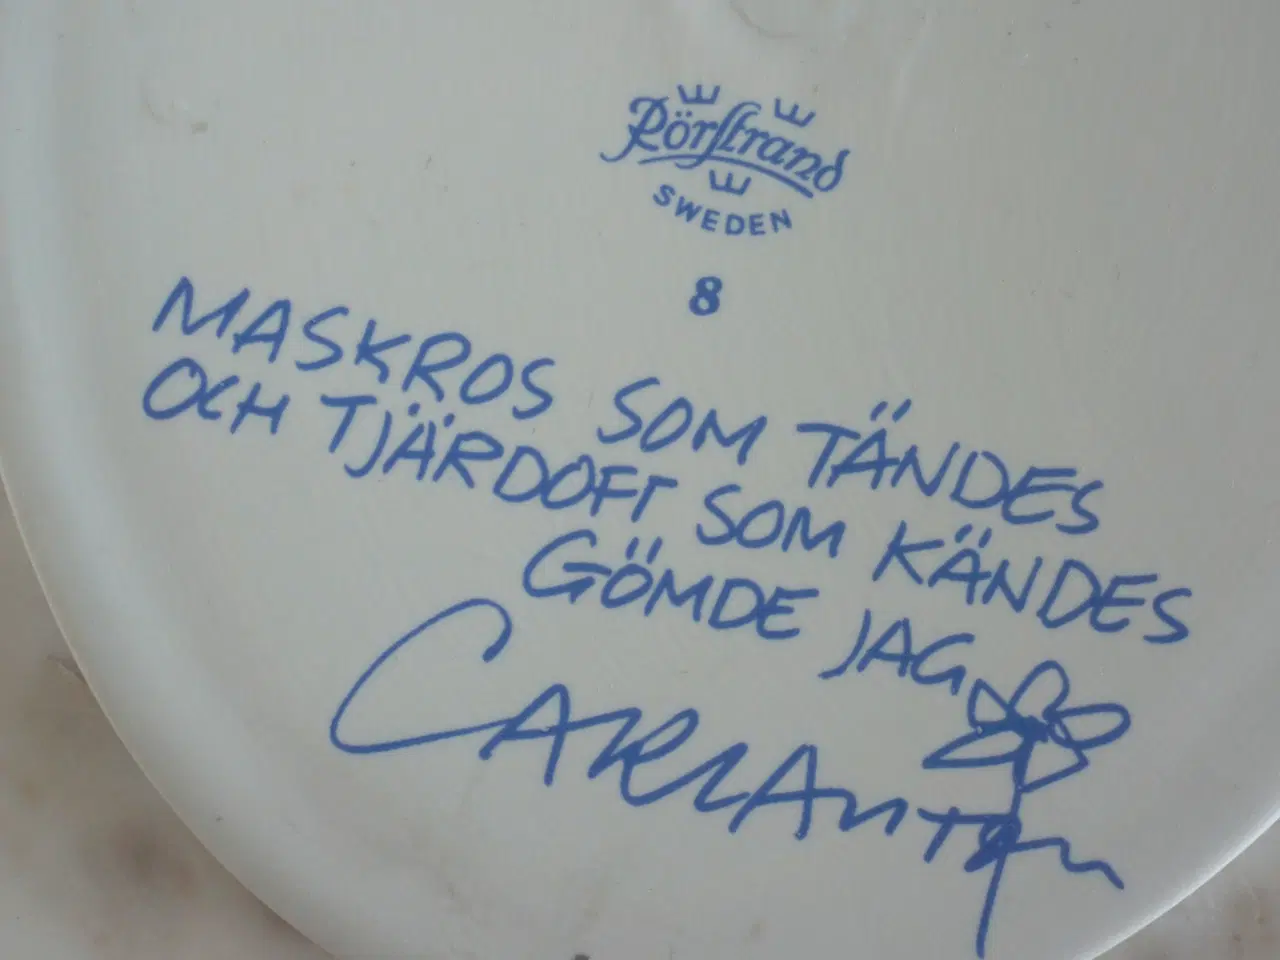 Rörstrand
SWEDEN
8
MASKROS SOM TÄNDES
OCH TJÄRDOFT SOM KÄNDES
GÖMDE JAG
CARL ANTON